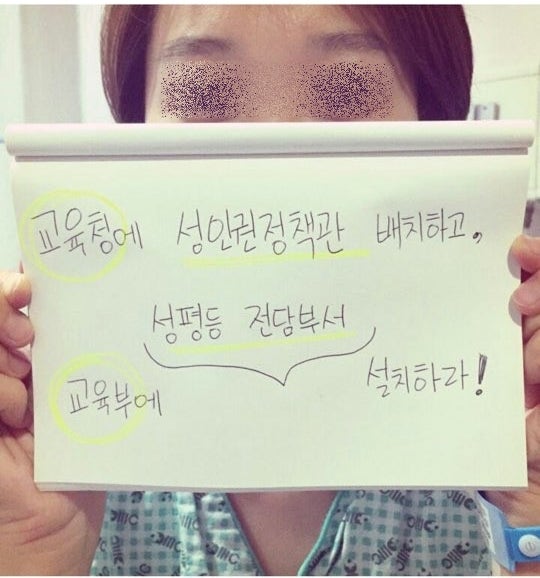 교육청에 성인권정책관 배치하고,
성평등 전담부서
교육부에 설치하라!